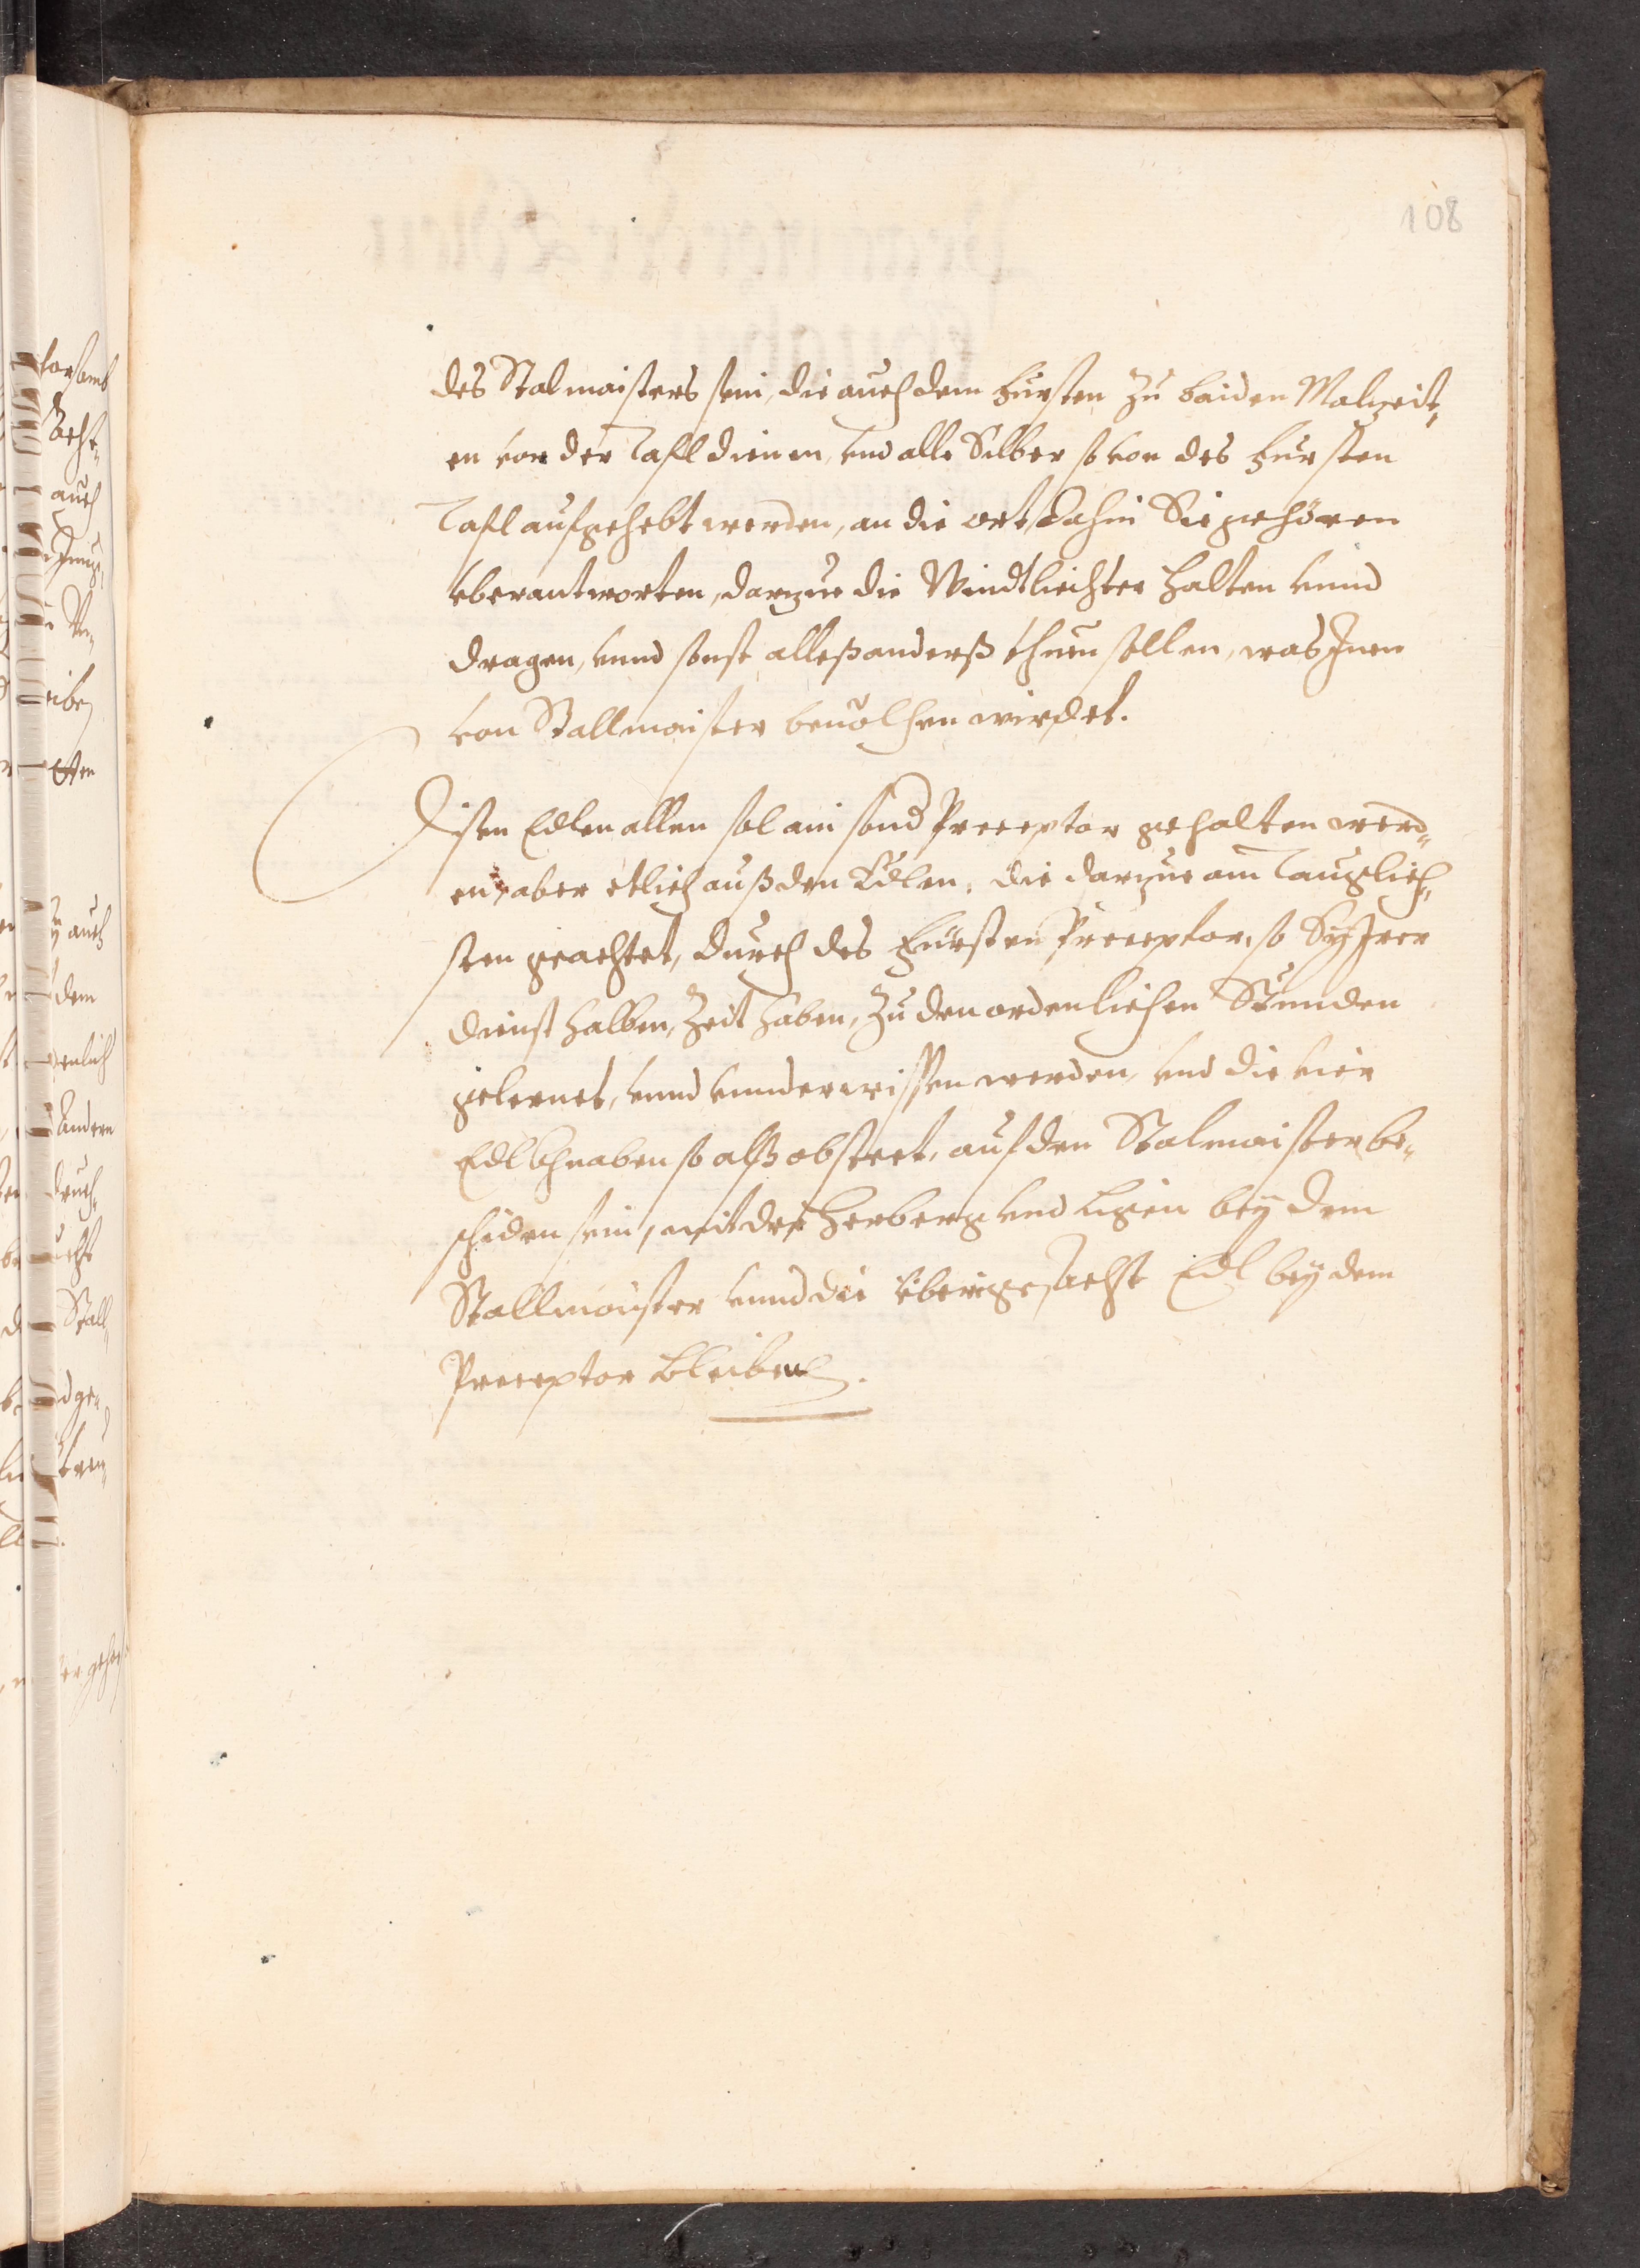 108
des Stalmaisters sein, die auch dem Fürsten zu baiden Malzeit„
en vor der Tafl dienen, vnd alle Silber so von des Fürsten
Tafl aufgehebt werden, an die ort dahin Sie gehören
vberantworten, darzue die Windtliechter halten vnnd
dragen, vnnd sonst alleß anderß thuen sollen, was Inen
von Stallmaister beuolhen wirdet.
Disen Edlen allen sol ain sond Preceptor gehalten werd„
en, aber etlich auß den Edlen, die darzue am Tauglich„
sten geachtet, durch des Fürsten Preceptor, so Sy Irer
dienst halben, Zeit haben, Zu den ordenlichen Stunden
gelernet, vnnd vnnderwissen werden, vnd die vier
Edlkhnaben so alß obsteet, auf den Stalmaister be„
schiden sein, mit der Herberg vnd Ligen bey dem
Stallmaister vnnd die Vberige sechst Edl bey dem
Preceptor bleiben.